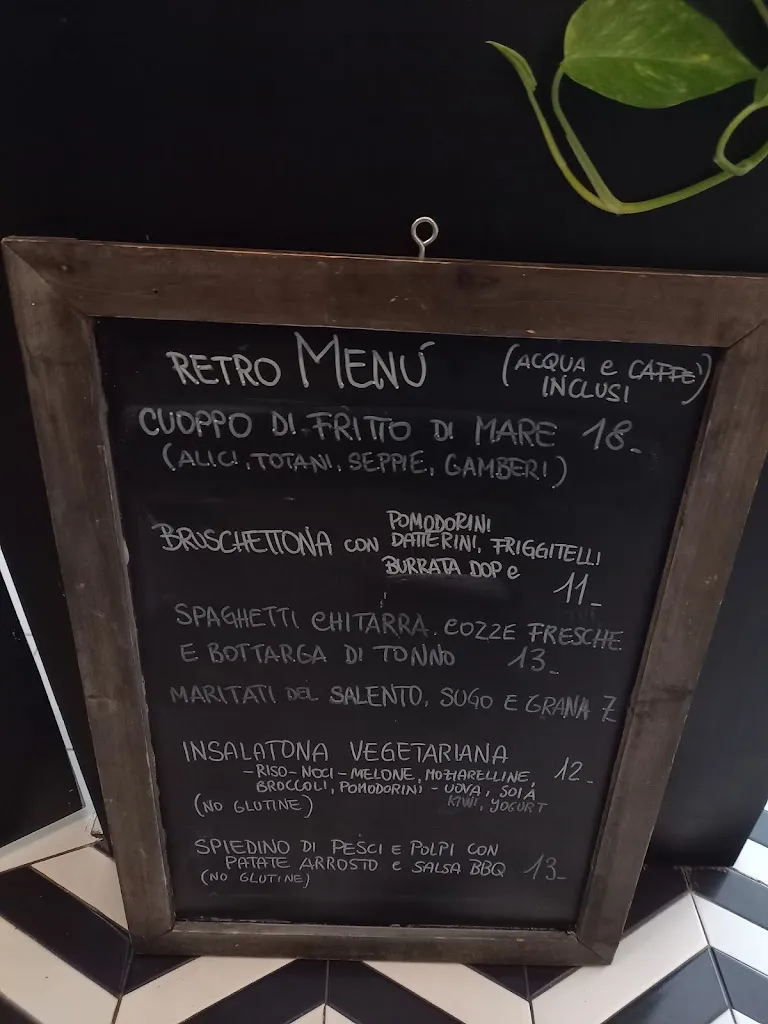 RETRO MENÚ (ACQUA e CAFFE'
INCLUSI)
CUOPPO DI FRITTO DI MARE 18-
(ALICI, TOTANI, SEPPIE, GAMBERI)
POMODORINI
BRUSCHETTONA CON DATTERINI, FRIGGITELLI
BURRATA DOP e 11-
SPAGHETTI CHITARRA, COZZE FRESCHE
E BOTTARGA DI TONNO 13-
MARITATI DEL SALENTO, SUGO E GRANA 7
INSALATONA VEGETARIANA 12-
-RISO-NOCI-MELONE, MOZZARELLINE,
BROCCOLI, POMODORINI-UOVA, SOIA
(NO GLUTINE) KIWI, YOGURT
SPIEDINO DI PESCI E POLPI CON
PATATE ARROSTO e SALSA BBQ 13-
(NO GLUTINE)